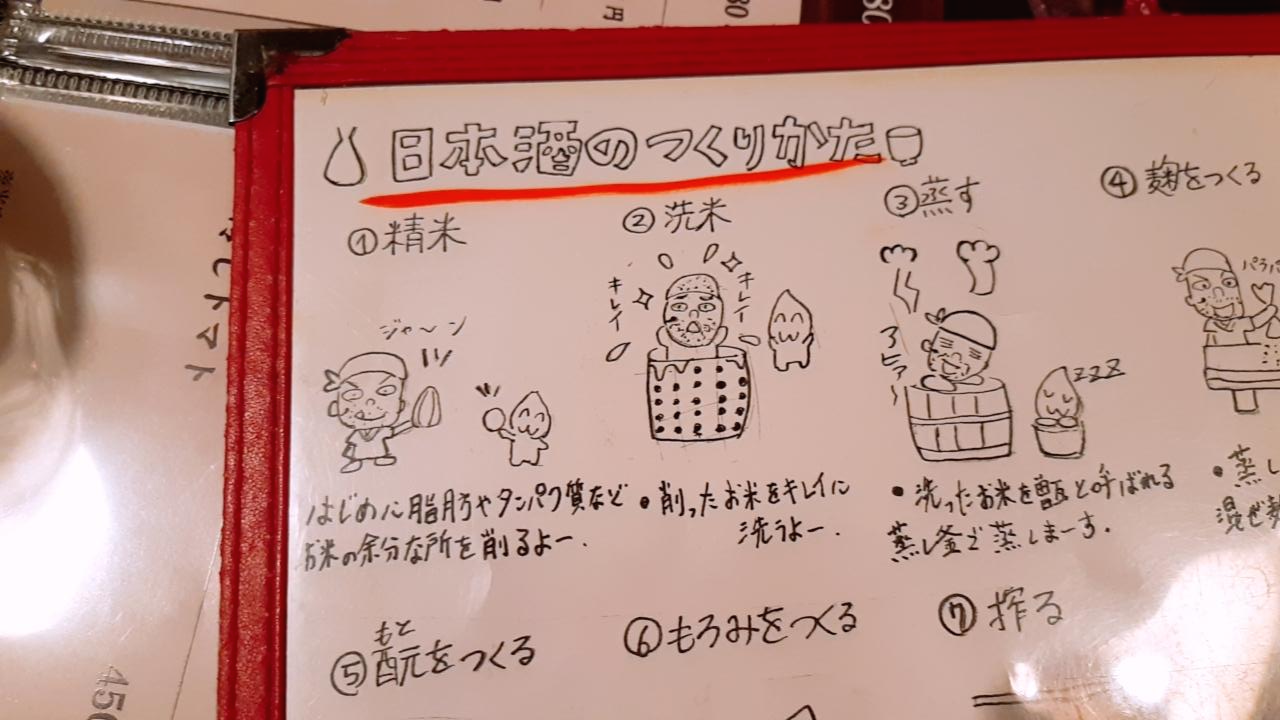 日本酒のつくりかた
①精米
ジャ〜ン
はじめに脂肪やタンパク質など
お米の余分な所を削るよー.
②洗米
キレイ
キレイ
• 削ったお米をキレイに
洗うよー.
③蒸す
zzz
• 洗ったお米を甑と呼ばれる
蒸し釜で蒸しまーす.
④麹をつくる
パラパ
• 蒸し
混ぜ
⑤酛をつくる
もと
⑥もろみをつくる
⑦搾る
円
450